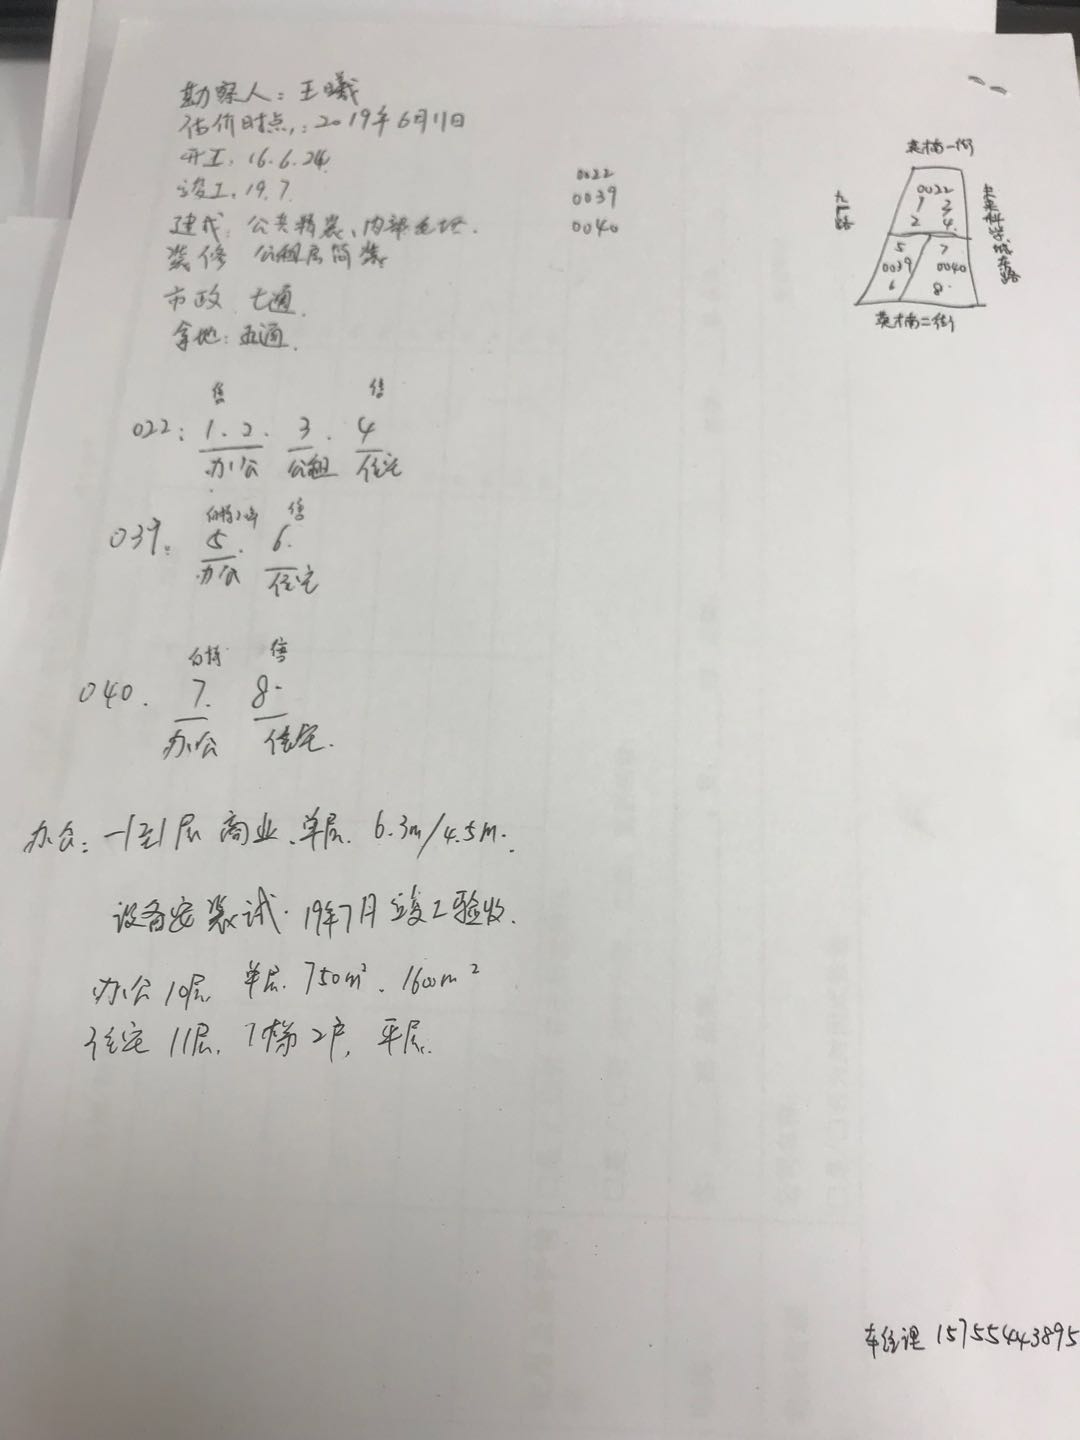 勘察人：王曦
估价时点：2019年6月11日
开工：16.6.24
竣工：19.7.
建成：公共精装、内部毛坯.
装修 公租房简装
市政 七通.
拿地：五通.
0022
0039
0040
英才南一街
九厂路
0022
1 3
2 4
5 7
0039 0040
6 8
未来科学城东路
英才南二街
售 售
022：1.2. 3. 4
办公 公租 住宅
自持 售
039： 5. 6.
办公 住宅
自持 售
040. 7. 8.
办公 住宅.
办公：-1至1层 商业、单层. 6.3m/4.5m.
设备安装试. 19年7月竣工验收.
办公10层 单层. 750m²、1600m²
住宅 11层, 1梯2户, 平层.
15755443895